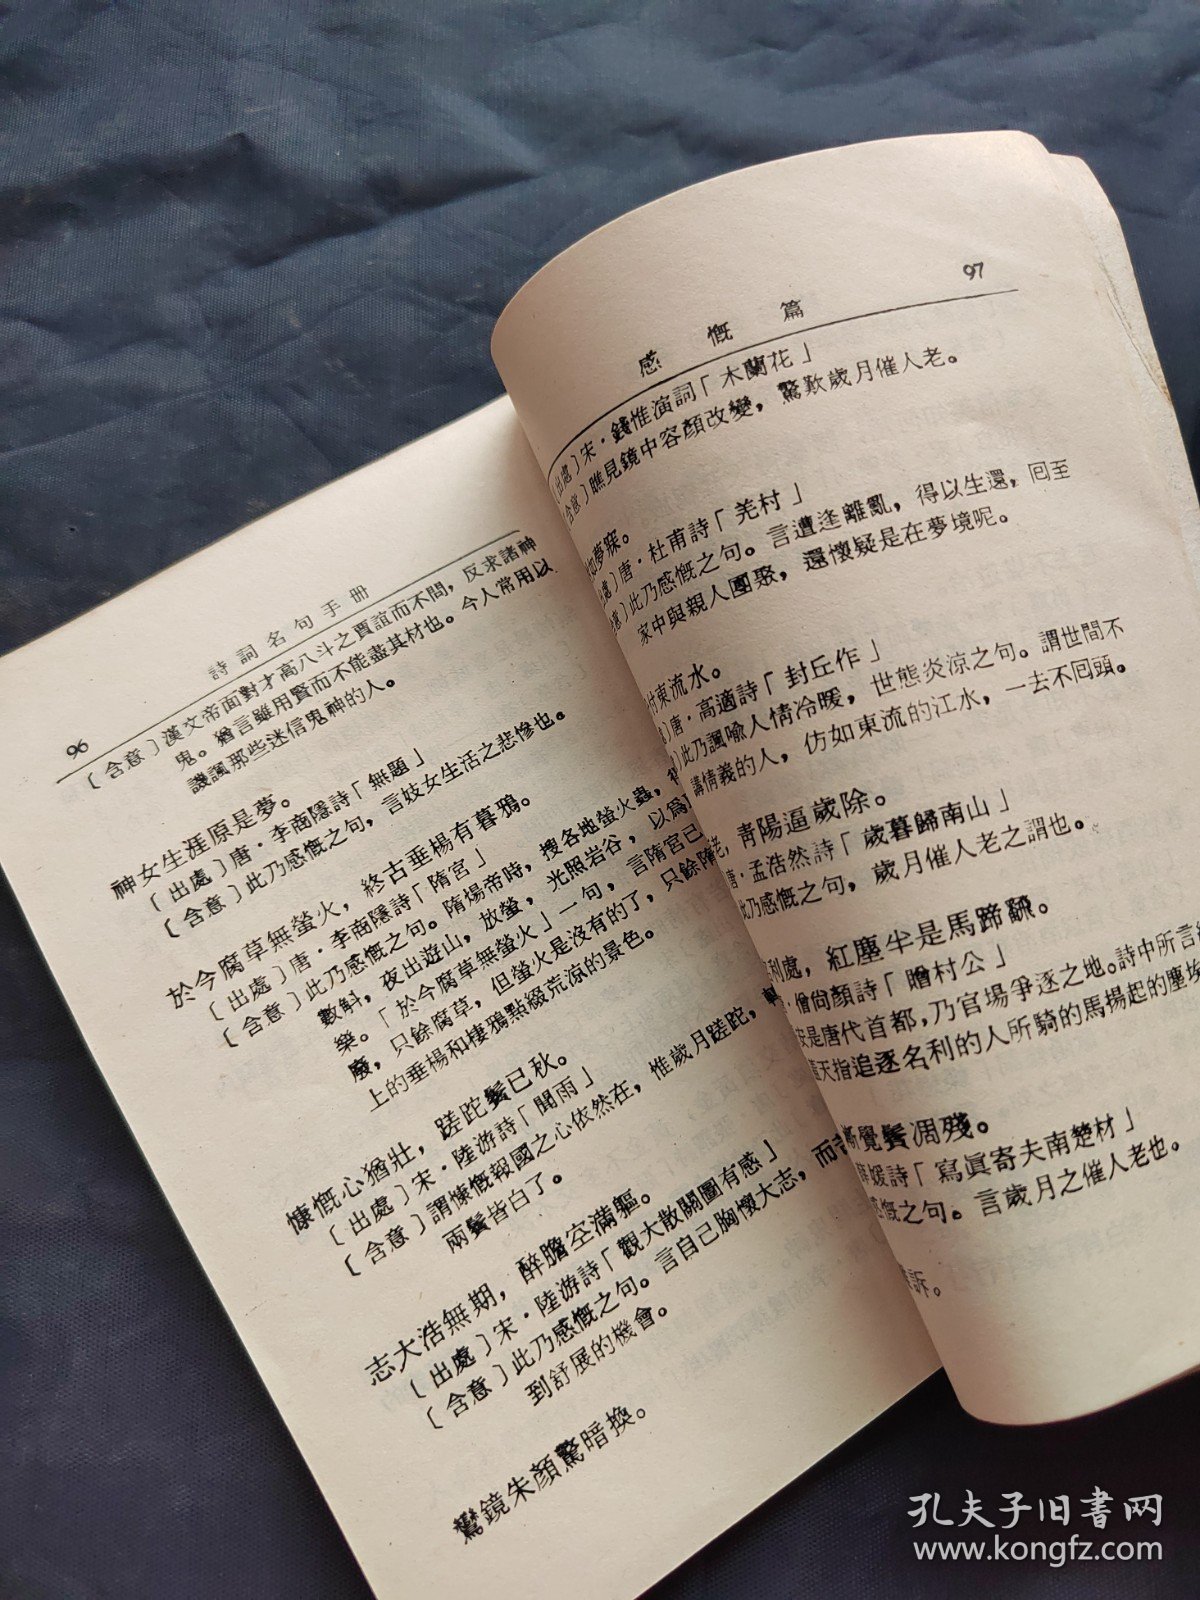 96
詩詞名句手册
〔含意〕漢文帝面對才高八斗之賈誼而不問，反求諸神
鬼。猶言雖用賢而不能盡其材也。今人常用以
譏諷那些迷信鬼神的人。
神女生涯原是夢。
〔出處〕唐·李商隱詩「無題」
〔含意〕此乃感慨之句，言妓女生活之悲慘也。
於今腐草無螢火，終古垂楊有暮鴉。
〔出處〕唐·李商隱詩「隋宮」
〔含意〕此乃感慨之句。隋煬帝時，搜各地螢火蟲，
數斛，夜出遊山，放螢，光照岩谷，以為
樂。「於今腐草無螢火」一句，言隋宮已
廢，只餘腐草，但螢火是沒有的了，只餘隋
上的垂楊和棲鴉點綴荒涼的景色。
慷慨心猶壯，蹉跎鬢已秋。
〔出處〕宋·陸游詩「聞雨」
〔含意〕謂慷慨報國之心依然在，惟歲月蹉跎，
兩鬢皆白了。
志大浩無期，醉膽空滿軀。
〔出處〕宋·陸游詩「觀大散關圖有感」
〔含意〕此乃感慨之句。言自己胸懷大志，而
到舒展的機會。
鸞鏡朱顏驚暗換。
感慨篇
97
〔出處〕宋·錢惟演詞「木蘭花」
含意〕瞧見鏡中容顏改變，驚歎歲月催人老。
如夢寐。
處〕唐·杜甫詩「羌村」
意〕此乃感慨之句。言遭逢離亂，得以生還，回至
家中與親人團聚，還懷疑是在夢境呢。
付東流水。
〕唐·高適詩「封丘作」
〕此乃諷喻人情冷暖，世態炎涼之句。謂世間不
講情義的人，仿如東流的江水，一去不回頭。
老，青陽逼歲除。
唐·孟浩然詩「歲暮歸南山」
此乃感慨之句，歲月催人老之謂也。
利處，紅塵半是馬蹄翻。
·僧尙顏詩「贈村公」
安是唐代首都，乃官場爭逐之地。詩中所言紅
天指追逐名利的人所騎的馬揚起的塵埃
漸覺鬢凋殘。
薛媛詩「寫眞寄夫南楚材」
感慨之句。言歲月之催人老也。
訴。
孔夫子旧书网
www.kongfz.com